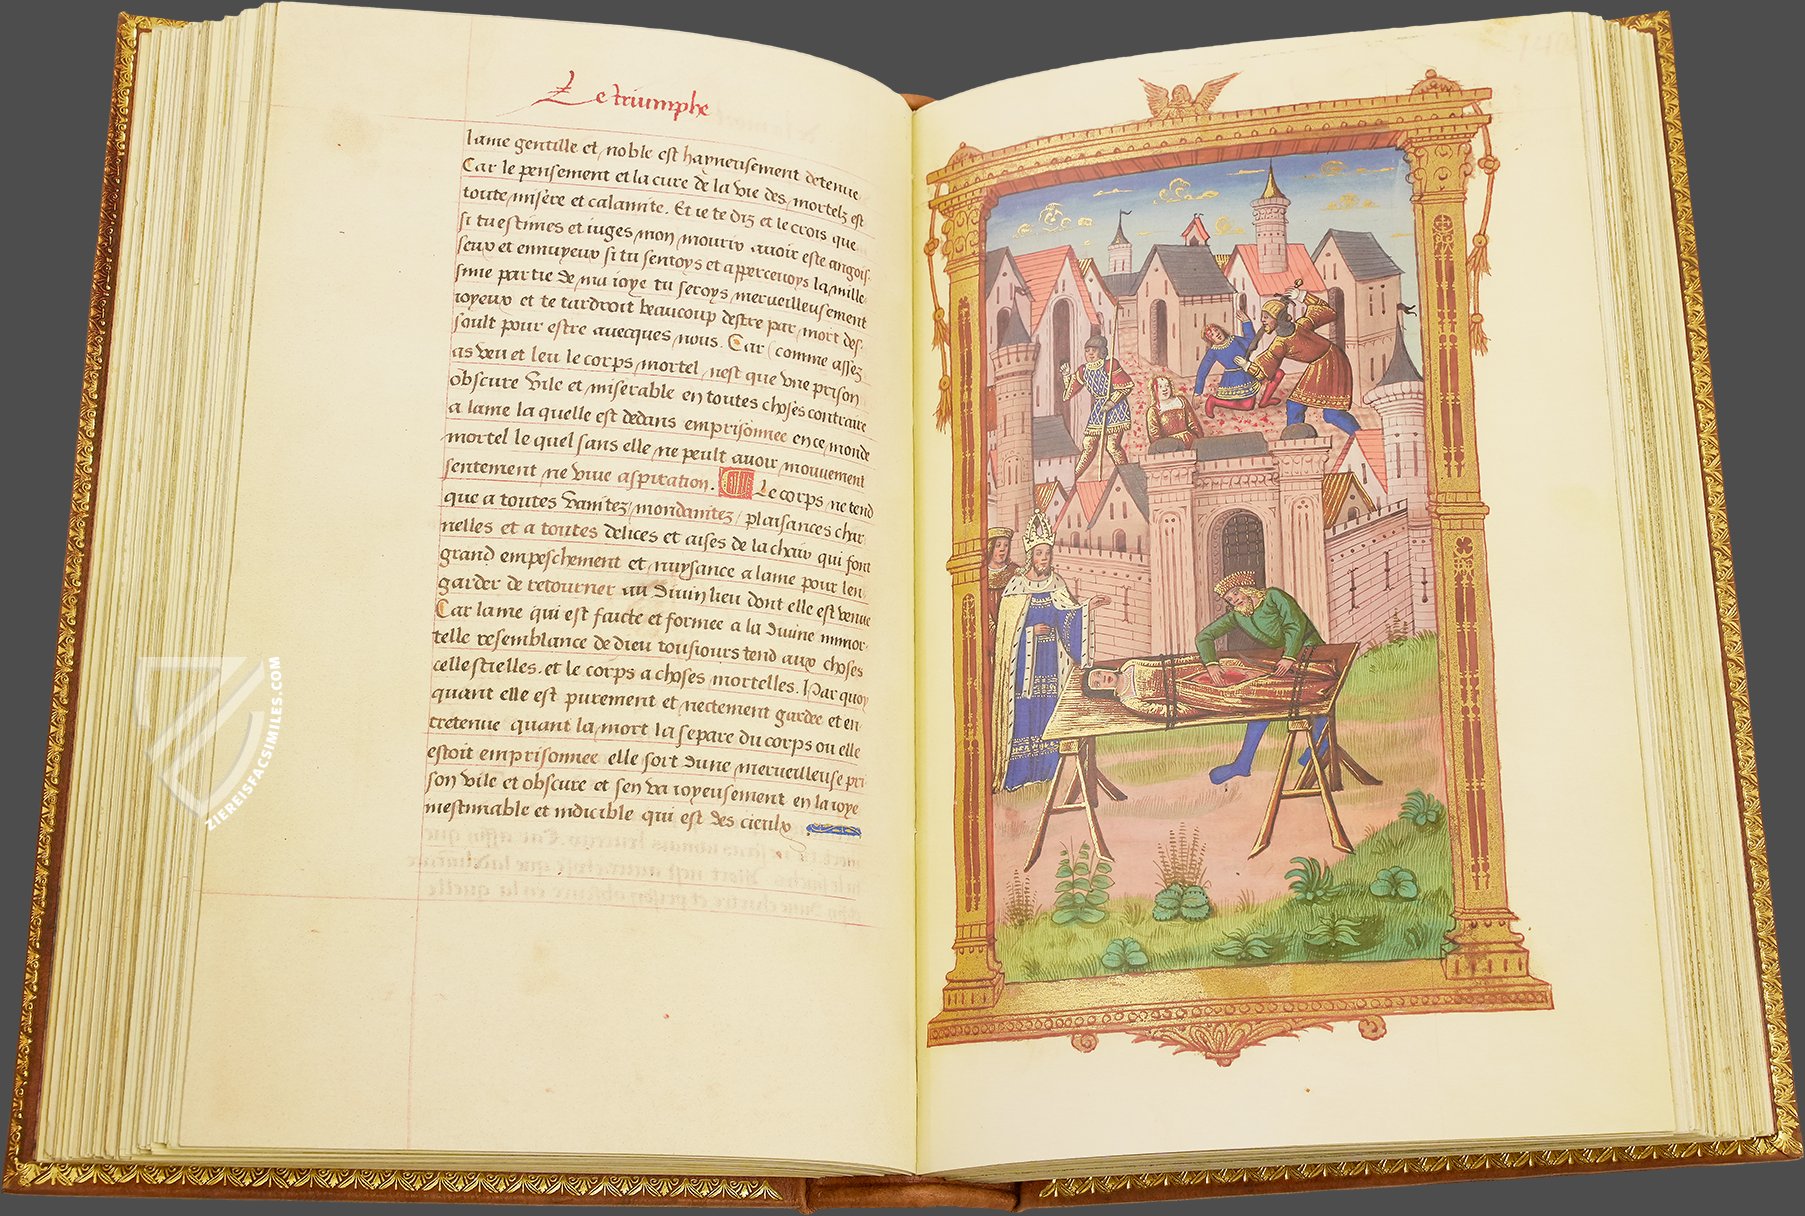 Le triumphe
lame gentille et noble est hayneusement detenue
Car le pensement et la cure de la vie des mortelz est
toute misere et calamite. Et ie te diz et le crois que
si tu estimes et iuges mon mourir auoir este angois-
seux et ennuyeux si tu sentoys et apperceuoys la mille-
sime partie de ma ioye tu seroys merueilleusement
ioyeux et te tardroit beaucoup destre par mort des-
soult pour estre auecques nous. Car comme assez
as veu et leu le corps mortel nest que vne prison
obscure vile et miserable en toutes choses contraire
a lame la quelle est dedans emprisonnee en ce monde
mortel le quel sans elle ne peult auoir mouuement
sentement ne viue aspiration. Le corps ne tend
que a toutes vanitez mondanitez plaisances char-
nelles et a toutes delices et aises de la chair qui font
grand empeschement et nuysance a lame pour len
garder de retourner au diuin lieu dont elle est venue
Car lame qui est faicte et formee a la diuine immor-
telle resemblance de dieu tousiours tend aux choses
cellestielles. et le corps a choses mortelles. Par quoy
quant elle est purement et nectement gardee et en-
tretenue quant la mort la separe du corps ou elle
estoit emprisonnee elle sort dune merueilleuse pri-
son vile et obscure et sen va ioyeusement en la ioye
inestimable et indicible qui est des cieulx
ZIEREISFACSIMILES.COM